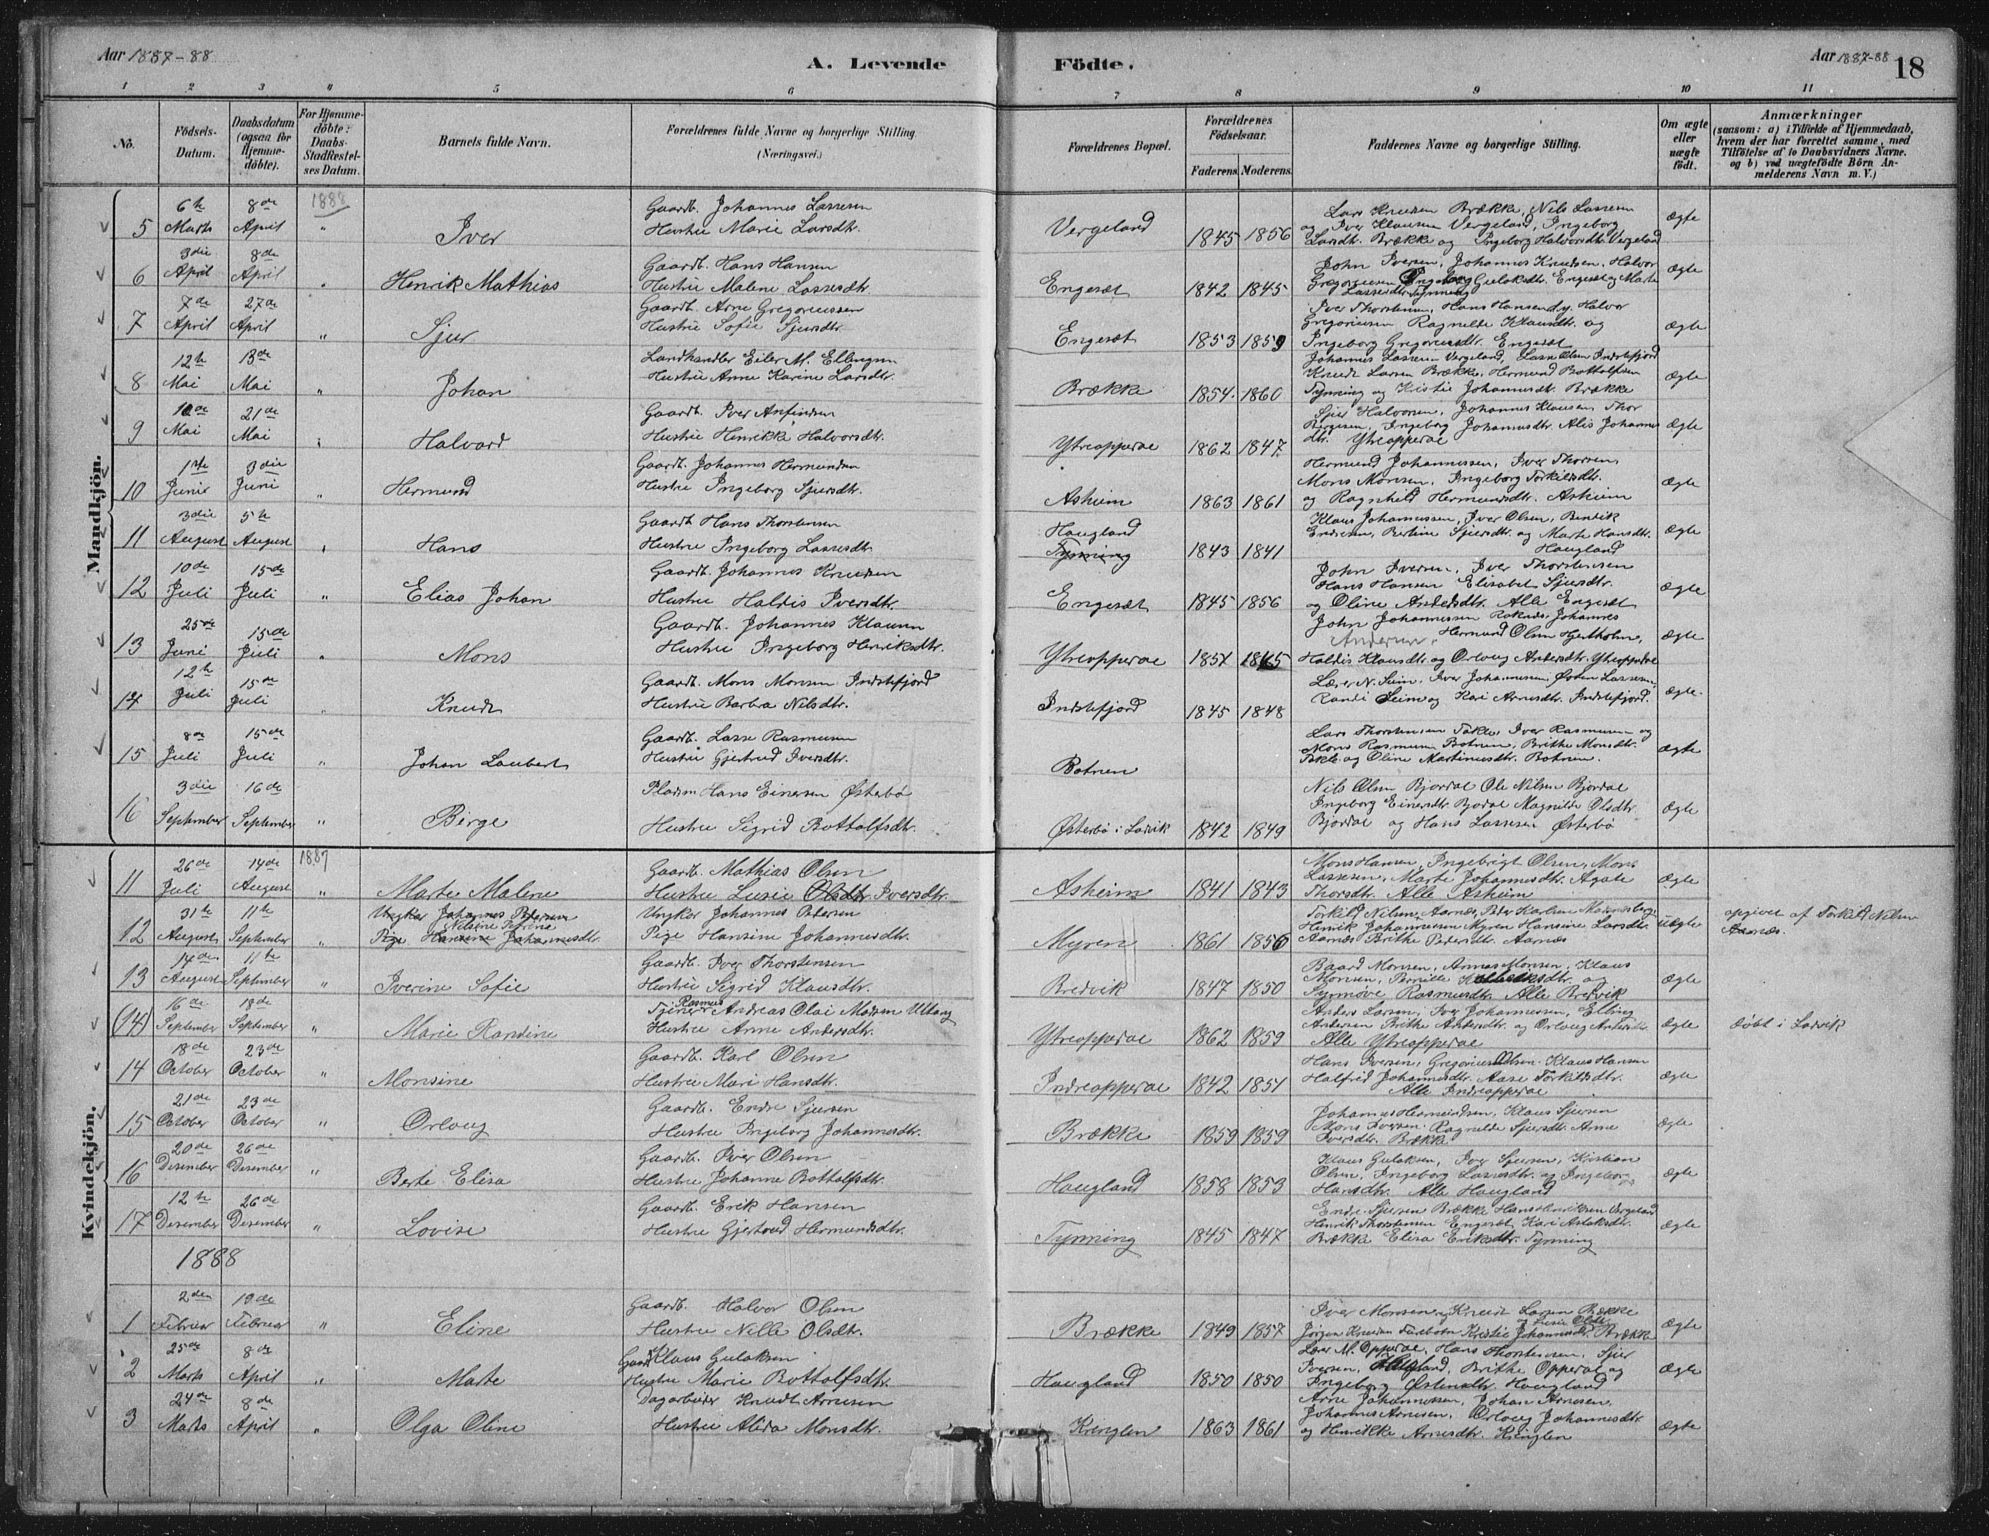 Aar 1887-88
A. Levende
Födte.
Aar 1887-88
18
1 2 3 4 5 6 7 8 9 10 11
No.
Födsels-Datum.
Daabsdatum (ogsaa for Hjemme-döbte).
For Hjemme-döbte: Daabs-Stadfæstel-ses Datum.
Barnets fulde Navn.
Forældrenes fulde Navne og borgerlige Stilling.
(Næringsvei.)
Forældrenes Bopæl.
Forældrenes Födselsaar.
Faderens. Moderens.
Faddernes Navne og borgerlige Stilling.
Om ægte eller uægte födt.
Anmærkninger
(saasom: a) i Tilfælde af Hjemmedaab, hvem der har forrettet samme, med Tilföielse af to Daabsvidners Navne, og b) ved uægtefödte Börn An-melderens Navn m. V.)
Mandkjön.
1888
5 6te Marts 8de April " Iver Gaardb. Johannes Lassesen
Hustru Marie Larsdtr. Vergeland 1845 1856 Lars Knudsen Brække, Nils Lassesen
og Iver Klausen Vergeland, Ingeborg
Larsdtr. Brække og Ingeborg Halvorsdtr. Vergeland ægte
6 3die April 8de April " Henrik Mathias Gaardb. Hans Hansen
Hustru Malene Lassesdtr. Engesæt 1842 1845 John Iversen, Johannes Knudsen, Halvor
Gregoriusen Ingeborg Gulaksdtr. Engesæt og Marte
Lassesdtr. Tynning ægte
7 7de April 27de April " Sjur Gaardb. Arne Gregoriussen
Hustru Sofie Sjursdtr. Engesæt 1853 1859 Iver Thorstensen, Hans Hansen og Halvor
Gregoriusen Ragnilde Klausdtr. og
Ingeborg Gregoriusdtr. Engesæt ægte
8 12te Mai 13de Mai " Johan Landhandler Eiler M. Ellingsen
Hustru Anne Karine Larsdtr. Brække 1854 1860 Johannes Lassesen Vergeland, Lasse Olsen Indstefjord
Knudt Larsen Brække, Hermund Bottolfsen
Tynning og Kristie Johannesdt. Brække ægte
9 10de Mai 21de Mai " Halvard Gaardb. Iver Anfindsen
Hustru Henrikke Halvorsdtr. Ytreopperæ 1862 1847 Sjur Halvorsen, Johannes Klausen, Thor
Børgesen, Ingeborg Johannesdtr. Alis Johannes
dtr. Ytreopperæ ægte
10 1ste Juni 3die Juni " Hermund Gaardb. Johannes Hermundsen
Hustru Ingeborg Sjursdtr. Asheim 1863 1861 Hermund Johannessen, Iver Thorsen,
Mons Monsen, Ingeborg Torkildsdtr.
og Ragnhild Hermundsdtr. Asheim ægte
11 3die August 5te August " Hans Gaardb. Hans Thorstensen
Hustru Ingeborg Lassesdtr. Haugland
Tynning 1843 1841 Klaus Johannessen, Iver Olsen, Bendik
Endresen, Bertine Sjursdtr. og Marte Hansdtr.
Haugland ægte
12 10de Juli 15de Juli " Elias Johan Gaardb. Johannes Knudsen
Hustru Haldis Iversdtr. Engesæt 1845 1856 John Iversen, Iver Thorstensen
Hans Hansen Elisabet Sjursdtr.
og Oline Andersdtr. Alle Engesæt ægte
13 25de Juni 15de Juli " Mons Gaardb. Johannes Klausen
Hustru Ingeborg Henriksdtr. Ytreopperæ 1857 1865 John Johannessen Johannes
Andersen, Hermund Olsen Hjertholm,
Haldis Klausdtr. og Orloug Andersdtr. Ytreopperæ ægte
14 12te Juli 15de Juli " Knudt Gaardb. Mons Monsen Indstefjord
Hustru Barbra Nilsdtr. Indstefjord 1845 1848 Lærer N. Seim, Iver Johannesen, Østen Lassesen,
Randi Seim og Kari Arnesdtr. Indstefjord. ægte
15 8de Juli 15de Juli " Johan Laubert Gaardb. Lasse Rasmusen
Hustru Gjertrud Iversdtr. Botnen Lars Thorstensen Takle, Iver Rasmusen og
Mons Rasmusen Botnen, Brithe Monsdtr.
Takle og Oline Martinusdtr. Botnen. ægte
16 3die September 16de September " Børge Pladsm. Hans Einersen Østerbø
Hustru Sigrid Bottolfsdtr. Østerbø i Ladvik 1842 1849 Nils Olsen Bjordal Ole Nilsen Bjordal
Ingeborg Einersdtr. Bjodal Magnilde Olsdtr.
Bjordal og Hans Lassesen Østerbø ægte
Kvindekjön.
1887
11 26de Juli 14de August " Marte Malene Gaardb. Mathias Olsen
Hustru Lusie Olsdtr. Iversdtr. Asheim 1841 1843 Mons Hansen, Ingebrigt Olsen, Mons
Lassesen, Marte Johannesdtr. Agate
Thorsdtr. Alle Asheim ægte
12 31te August 11te September " Ungkar Johannes Petersen
Nilsine Tofine
Pige Hansine Johannesdtr. Ungkar Johannes Petersen
Pige Hansine Johannesdtr. Myren 1861 1856 Torkild Nilsen, Aarnæs, Peder Karlsen
Henrik Johannesen Myren Hansine Larsdtr.
Aarnæs Brithe Pedersdtr. Aarnæs uægte opgivet af Torkild Nilsen
Aarnæs.
13 14de August 11te September " Iverine Sofie Gaardb. Iver Thorstensen
Hustru Sigrid Klausdtr. Bredvik 1847 1850 Baard Monsen, Annas Monsen, Klaus
Monsen, Pernille og
Synnøve Rasmusdtr. Alle Bredvik ægte
(14) 16de September 18de September " Marie Randine Tjener Rasmus Andreas Olai Madsen Utlaug
Hustru Anne Andersdtr. Ytreopperæ 1862 1859 Anders Larsen, Iver Johannessen, Elling
Andersen Brithe Andersdtr. og Orloug Andersdtr.
Alle Ytreopperæ ægte døbt i Ladvik
14 18de October 23de October " Monsine Gaardb. Karl Olsen
Hustru Mari Hansdtr. Indreopperæ 1842 1851 Hans Iversen, Gregorius Olsen, Klaus Hansen
Halfrid Johannesdtr. Aase Torkildsdtr.
Alle Indreopperæ ægte
15 21de October 23de October " Orloug Gaardb. Endre Sjursen
Hustru Ingeborg Johannesdtr. Brække 1859 1859 Johannes Hermundsen, Klaus Sjursen
Mons Iversen Ragnilde Sjursdtr. Anne
Iversdtr. Brække ægte
16 20de Desember 26de Desember " Berte Elisa Gaardb. Iver Olsen
Hustru Johanne Bottolfsdtr. Haugland 1858 1853 Klaus Gulaksen, Iver Sjursen, Kristian
Olsen, Ingeborg Lassesdtr. og Ingeborg
Hansdtr. Alle Haugland ægte
17 12te Desember 26de Desember " Lovise Gaardb. Erik Hansen
Hustru Gjertrud Hermundsdtr. Tynning 1845 1847 Endre Sjursen Brække Hans Henriksen Vergeland
Henrik Thorstensen Engesæt Kari Aslaksdtr.
Brække Elisa Eriksdtr. Tynning ægte
1888
1 2den Februar 19de Februar " Eline Gaardb. Halvor Olsen
Hustru Nille Olsdtr. Brække 1849 1857 Iver Monsen og Knudt Larsen Brække
og Lusie Olsdtr.
Jørgen Knudsen Kristie Johannesdtr. Brække ægte
2 25de Marts 8de April " Marte Gaardb. Klaus Gulaksen
Hustru Marie Bottolfsdtr. Haugland 1850 1850 Lærer M. Opperæ, Hans Thorstensen, Sjur
Iversen, Haugland, Brithe Opperæ og
Ingeborg Østensdtr. Haugland ægte
3 24de Marts 8de April " Olga Oline Dagarbeider Knudt Arnesen
Hustru Alida Monsdtr. Kringlen 1863 1861 Arne Johannessen, Johan Arnesen,
Johannes Arnesen, Orloug Johannesdtr.
og Henrikke Arnesdtr. Kringlen ægte